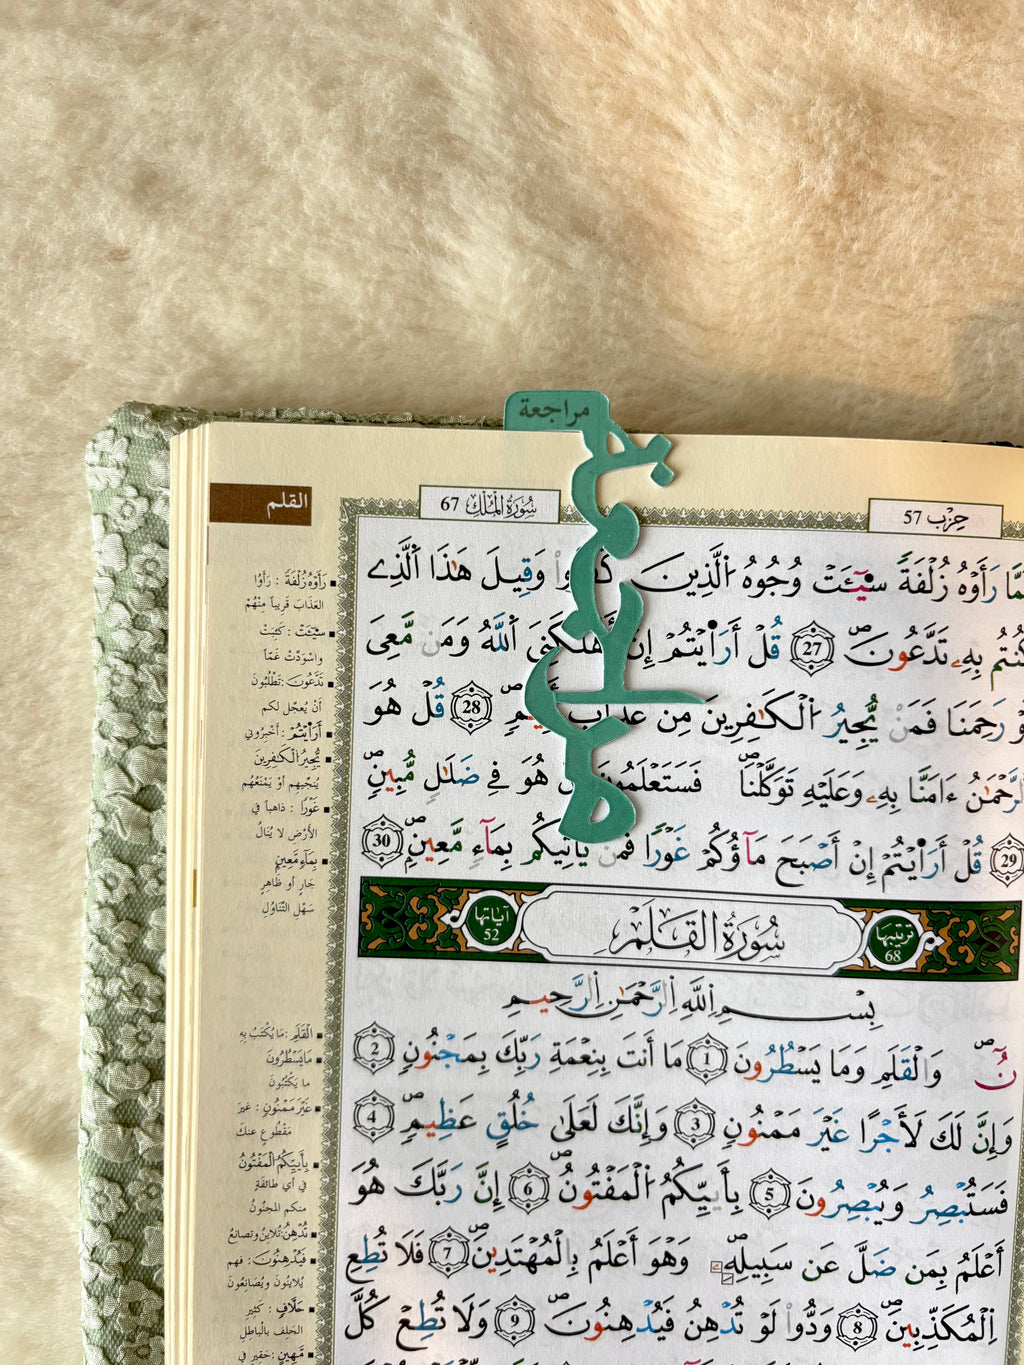 مراجعة
القلم
سُورَةُ الْمُلْكِ 67
حِزْب 57
رَأَوْهُ زُلْفَةً سِيٓـَٔتْ وُجُوهُ اُ۬لذِينَ كَفَرُواْ وَقِيلَ هَٰذَا اَ۬لذِے
كُنتُم بِهِۦ تَدَّعُونَ 27 قُلْ أَرَٰٓيْتُمْ إِنْ أَهْلَكَنِيَ اَ۬للَّهُ وَمَن مَّعِيَ
رَحِمَنَا فَمَنْ يُّجِيرُ اُ۬لْكَٰفِرِينَ مِن عَذَابٍ 28 قُلْ هُوَ
اَ۬لرَّحْمَٰنُ ءَامَنَّا بِهِۦ وَعَلَيْهِ تَوَكَّلْنَا فَسَتَعْلَمُونَ هُوَ فِے ضَلَٰلٖ مُّبِينٖ
29 قُلْ أَرَٰٓيْتُمْ إِنْ أَصْبَحَ مَآؤُكُمْ غَوْراً فَمَن يَأْتِيكُم بِمَآءٖ مَّعِينٖ 30
آياتها 52
سُورَةُ الْقَلَمِ
ترتيبها 68
بِسْمِ اِ۬للَّهِ اِ۬لرَّحْمَٰنِ اِ۬لرَّحِيمِ
نٓ وَالْقَلَمِ وَمَا يَسْطُرُونَ 1 مَا أَنتَ بِنِعْمَةِ رَبِّكَ بِمَجْنُونٖ 2
وَإِنَّ لَكَ لَأَجْراً غَيْرَ مَمْنُونٖ 3 وَإِنَّكَ لَعَلَىٰ خُلُقٍ عَظِيمٖ 4
فَسَتُبْصِرُ وَيُبْصِرُونَ 5 بِأَييِّكُمُ اُ۬لْمَفْتُونُ 6 إِنَّ رَبَّكَ هُوَ
أَعْلَمُ بِمَن ضَلَّ عَن سَبِيلِهِۦ وَهُوَ أَعْلَمُ بِالْمُهْتَدِينَ 7 فَلَا تُطِعِ
اِ۬لْمُكَذِّبِينَ 8 وَدُّواْ لَوْ تُدْهِنُ فَيُدْهِنُونَ 9 وَلَا تُطِعْ كُلَّ
رَأَوْهُ زُلْفَةً : رَأَوُا
العَذَابَ قَرِيباً مِنْهُمْ
سِيٓـَٔتْ : كَئِبَتْ
واسْوَدَّتْ غَمّاً
تَدَّعُونَ : تَطْلُبُونَ
أن يُعَجَّل لكم
أَرَٰٓيْتُمْ : أَخْبِرُوني
يُّجِيرُ الْكَٰفِرِينَ
يُنَجِّيهِم أَوْ يَمْنَعُهُم
غَوْراً : ذاهباً في
الأَرْضِ لا يُنَالُ
بِمَآءٖ مَّعِينٖ
جَارٍ أو ظَاهِرٍ
سَهْلِ التَّنَاوُلِ
الْقَلَمِ : مَا يُكْتَبُ بِهِ
مَا يَسْطُرُونَ
ما يَكْتُبُونَ
غَيْرَ مَمْنُونٖ : غيرَ
مَقْطُوعٍ عنكَ
بِأَييِّكُمُ الْمَفْتُونُ
في أي طائفةٍ
منكم المجنُونُ
تُدْهِنُ : تُلايِنُ وتصانعُ
فَيُدْهِنُونَ : فهم
يُلايِنُونَ ويُصَانِعُونَ
حَلَّافٖ : كَثِيرِ
الحَلِف بالباطِلِ
مَّهِينٍ : حَقِيرٍ في